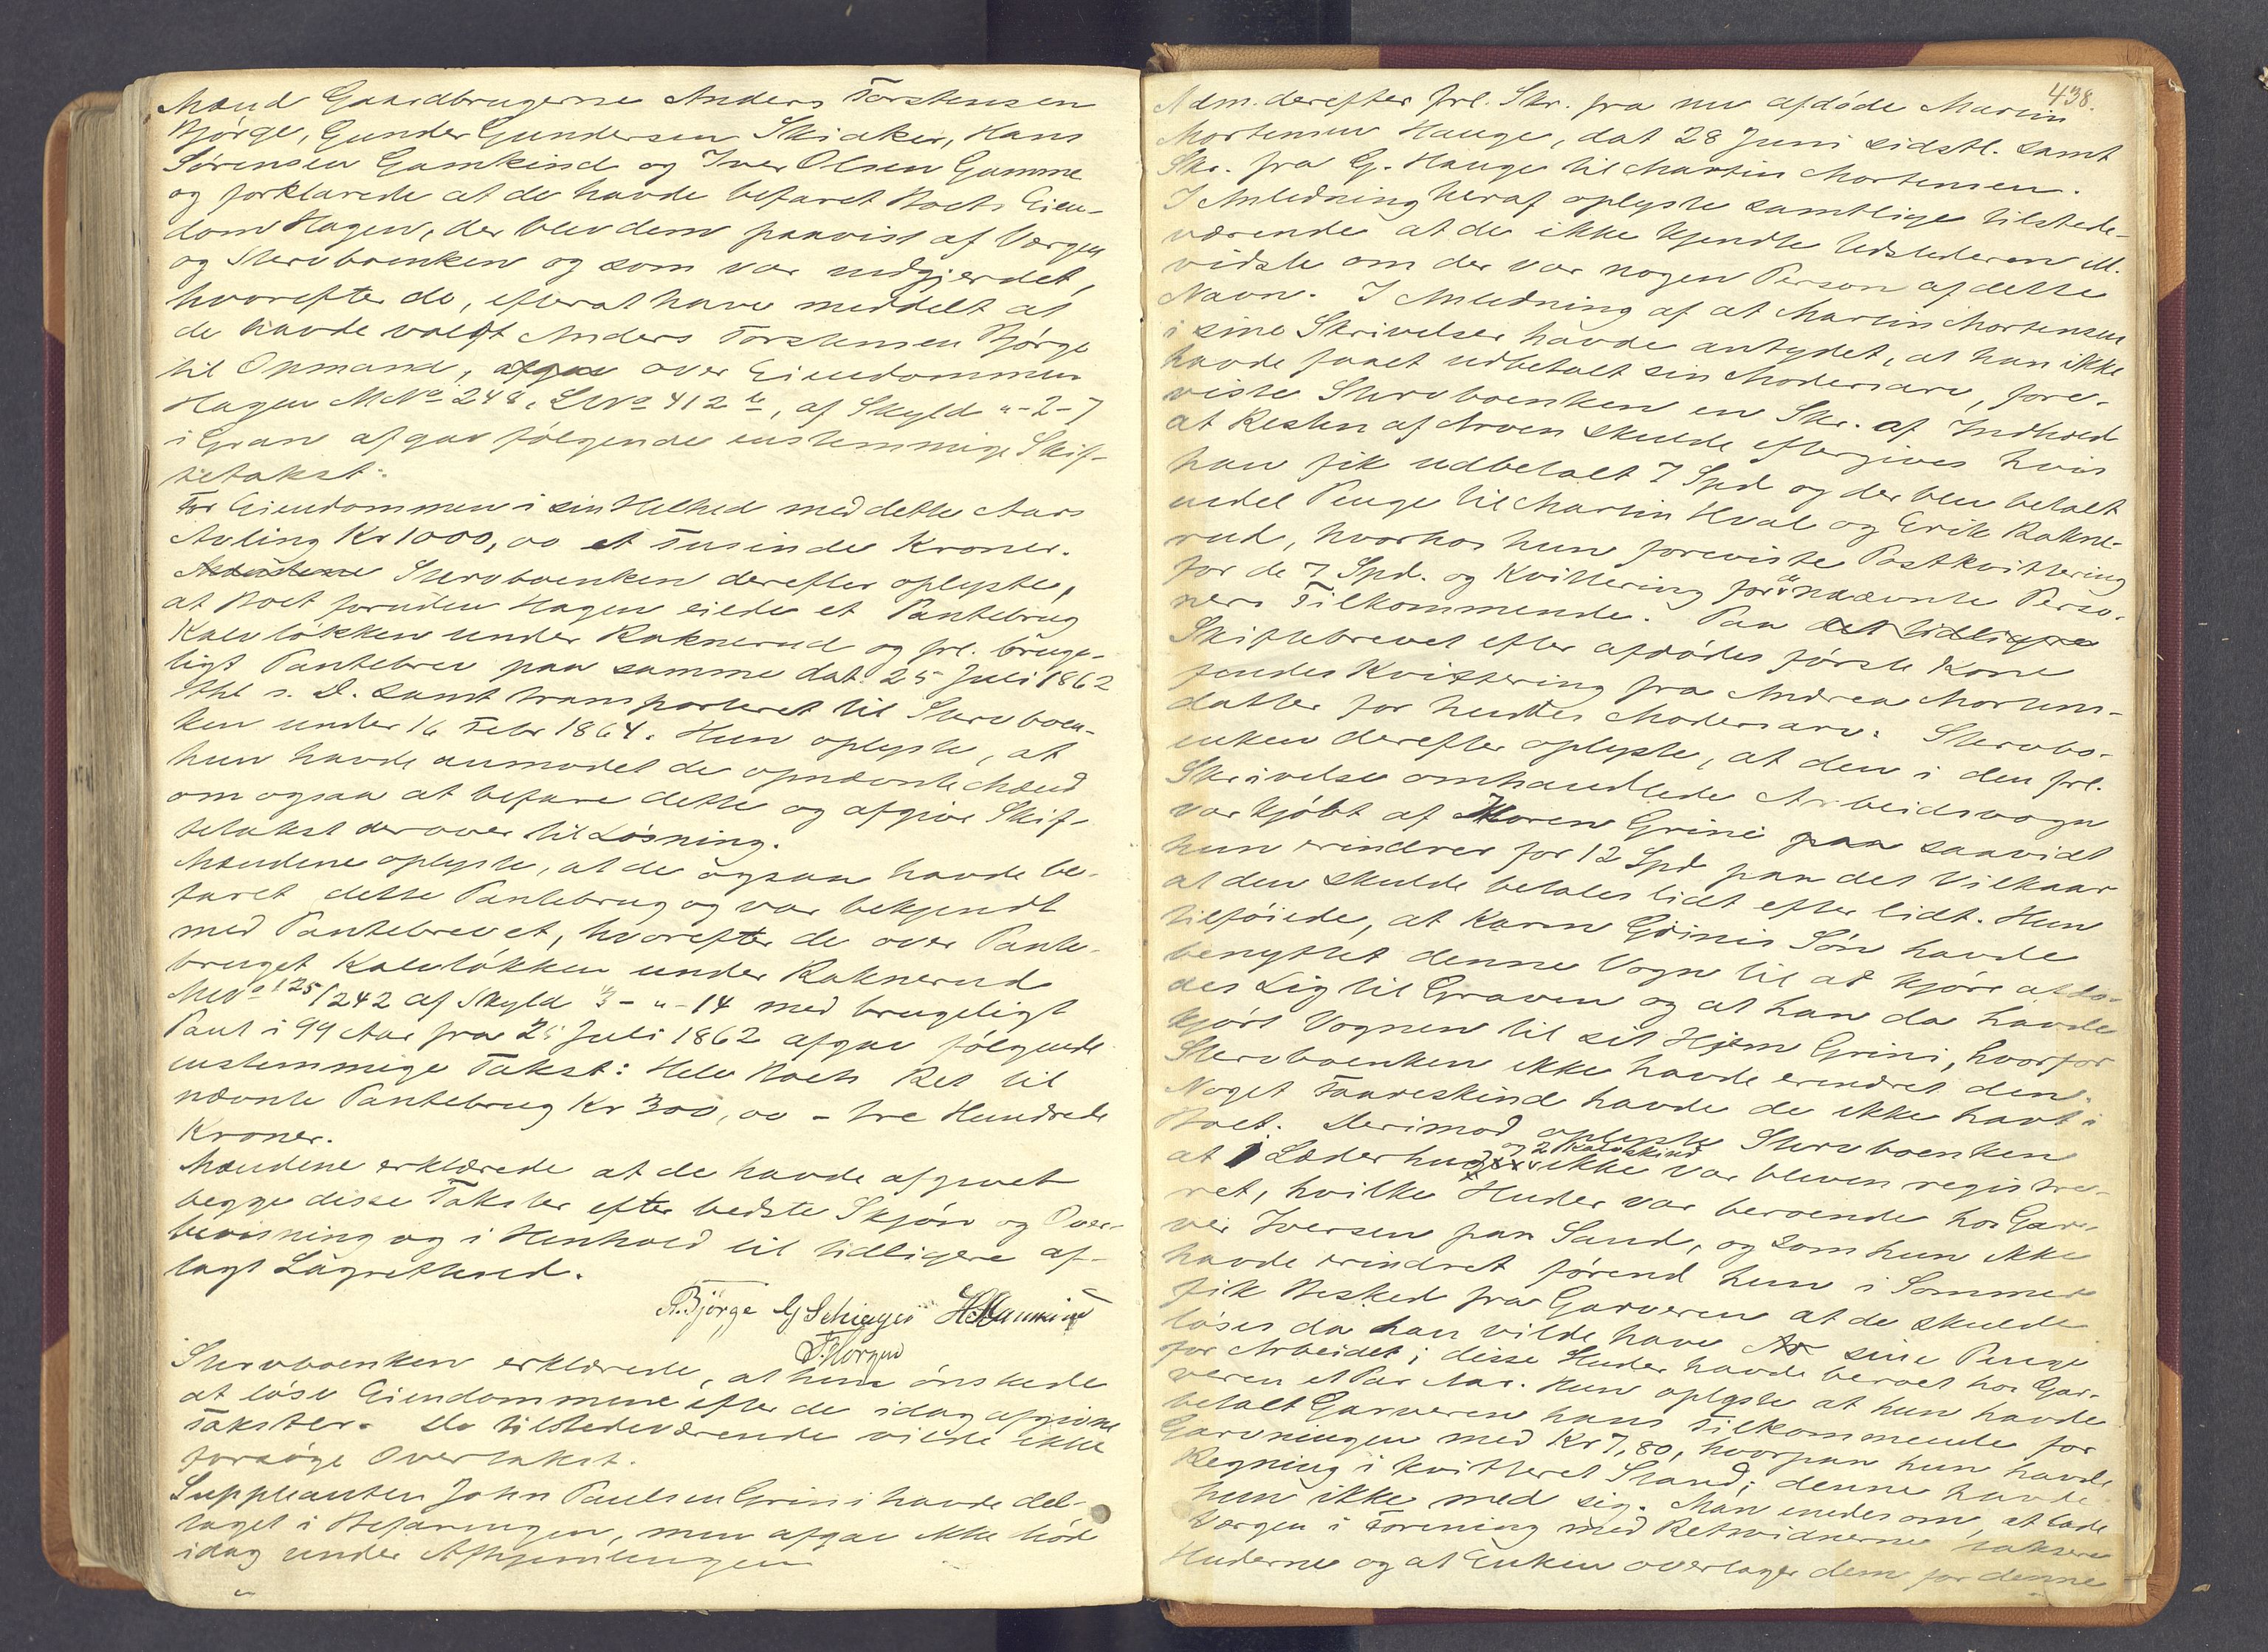 Mænd Gaardbrugerne Anders Torstensen
Bjørge, Gunder Gundersen Skiaker, Hans
Sørensen Gamkind og Iver Olsen Gamme
og forklarede at de havde befaret Boets Eien-
dom Hagen, der blev dem paavist af Værgen
og Stervboenken og som var indgjerdet,
hvorefter de, efterat have meddelt at
de havde valgt Anders Torstensen Bjørge
til Opmand, over Eiendommen
Hagen MNo 248, LNo 412 b, af Skyld "-2-7
i Gran afgav følgende enstemmige Skif-
tetakst:
For Eiendommen i sin Helhed med dette Aars
Avling Kr 1000,00 et Tusinde Kroner.
Stervboenken derefter oplyste,
at Boet foruden Hagen eiede et Pantebrug
Kalvløkken under Raknerud og frl. bruge-
ligt Pantebrev paa samme dat. 25 Juli 1862
thl s. D. samt transporteret til Stervboen-
ken under 16 Febr 1864. Hun oplyste, at
hun havde anmodet de opnævnte Mænd
om ogsaa at befare dette og afgive Skif-
tetakst derover til Løsning.
Mændene oplyste, at de ogsaa havde be-
faret dette Pantebrug og var bekjendt
med Pantebrevet, hvorefter de over Pante-
bruget Kalvløkken under Raknerud
MNo 125/242 af Skyld 3-"-14 med brugeligt
Pant i 99 Aar fra 25 Juli 1862 afgav følgende
enstemmige Takst: Hele Boets Ret til
nævnte Pantebrug Kr 300,00 - tre Hundrede
Kroner.
Mændene erklærede at de havde afgivet
begge disse Takster efter bedste Skjøn og Over-
bevisning og i Henhold til tidligere af-
lagt Lagrettesed.
A. Bjørge G Schiager
Stervboenken erklærede, at hun ønskede
at løse Eiendommene efter de idag afgivne
Takster. De tilstedeværende vilde ikke
forsøge Overtakst.
Suppleanten John Paulsen Grini havde del-
taget i Befaringen, men afgav ikke Møde
idag under Afhjemlingen
438.
Adm. derefter frl. Skr. fra nu afdøde Martin
Mortensen Hauge, dat 28 Juni sidstl. samt
Skr. fra G. Hauge til Martin Mortensen.
I Anledning heraf oplyste samtlige tilstede-
værende at de ikke kjendte Udstederen el.
vidste om der var nogen Person af dette
Navn. I Anledning af at Martin Mortensen
i sine Skrivelser havde antydet, at han ikke
havde faaet udbetalt sin Modersarv, fore-
viste Stervboenken en Skr. af Indhold
at Resten af Arven skulde eftergives hvis
han fik udbetalt 7 Spd og der blev betalt
endel Penge til Martin Hval og Erik Rakne-
rud, hvorhos hun foreviste Postkvittering
for de 7 Spd. og Kvittering for de nævnte Perso-
ners Tilkommende. Paa det tidligere
Skiftebrevet efter afdødes første Kone
fandes Kvittering fra Andrea Mortens-
datter for hendes Modersarv. Stervbo-
enken derefter oplyste, at den i den frl.
Skrivelse omhandlede Arbeidsvogn
var kjøbt af Karen Grini paa saavidt
hun erindrer for 12 Spd paa det Vilkaar
at den skulde betales lidt efter lidt. Hun
tilføiede, at Karen Grinis Søn havde
benyttet denne Vogn til at kjøre afdø-
des Lig til Graven og at han da havde
kjørt Vognen til sit Hjem Grini, hvorfor
Stervboenken ikke havde erindret den.
Noget Faareskind havde de ikke havt i
Boet. Derimod oplyste Stervboenken
at 1 Læderhud og 2 Kalvskind ikke var bleven registre-
ret, hvilke Huder var beroende hos Gar-
ver Iversen paa Sand, og som hun ikke
havde erindret førend hun i Sommer
fik Besked fra Garveren at de skulde
løses da han vilde have sine Penge
for Arbeidet; disse Huder havde beroet hos Gar-
veren et Par Aar. Hun oplyste at hun havde
betalt Garveren hans Tilkommende for
Garvningen med Kr 7,80, hvorpaa hun havde
Regning i kvitteret Stand; denne havde
hun ikke med sig. Man enedes om, at lade
Værgen i Forening med Retsvidnerne taksere
Huderne og at Enken overtager dem for denne